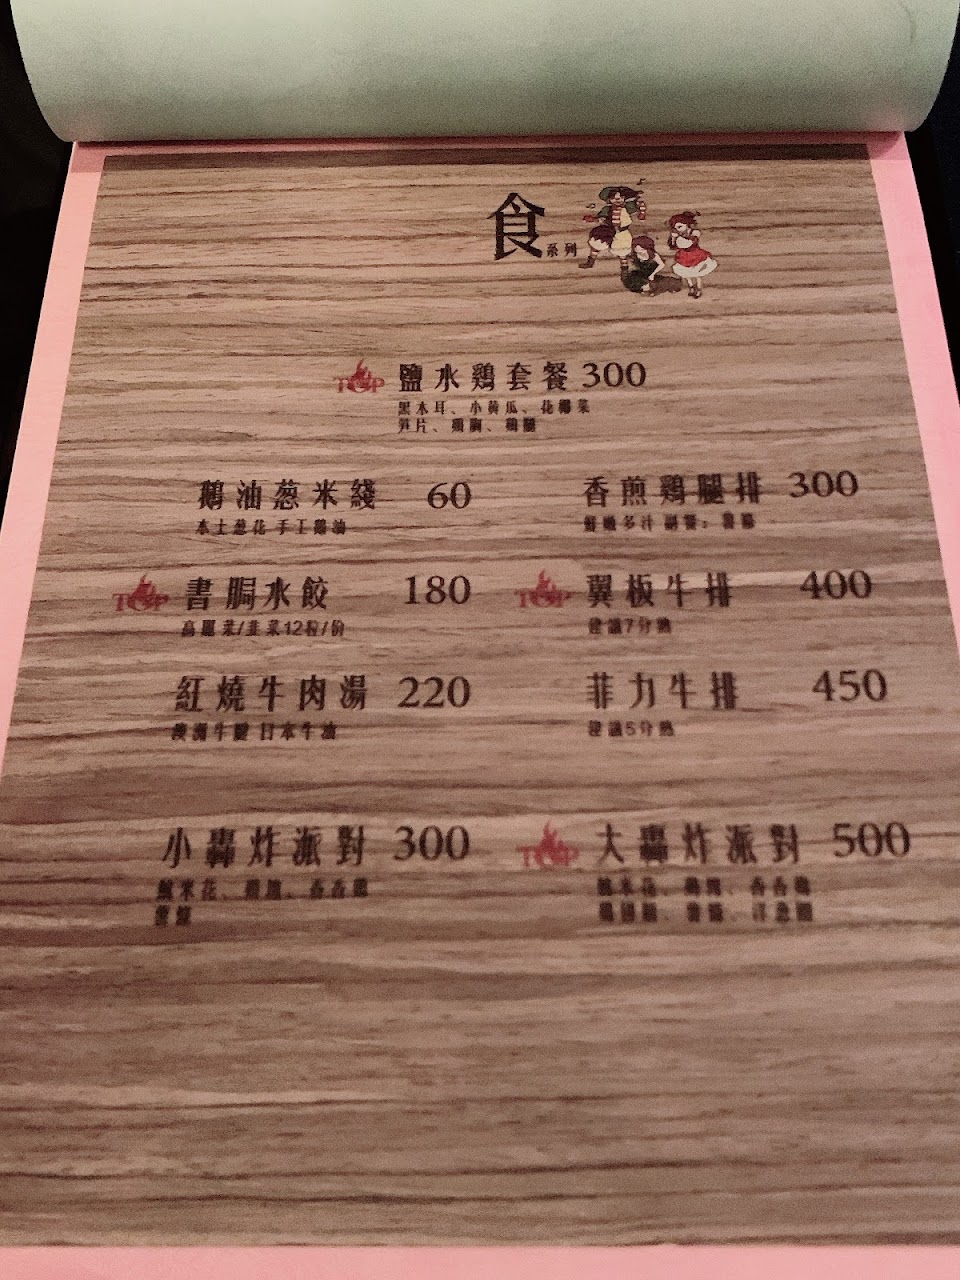 食系列
TOP 鹽水鷄套餐 300
黑木耳、小黃瓜、花椰菜
笋片、鷄胸、鷄腿
鵝油葱米綫 60
本土葱花 手工鵝油
香煎鷄腿排 300
鮮嫩多汁 副餐：薯條
TOP 書胴水餃 180
高麗菜/韭菜12粒/份
TOP 翼板牛排 400
建議7分熟
紅燒牛肉湯 220
澳洲牛腱 日本牛油
菲力牛排 450
建議5分熟
小轟炸派對 300
魷米花、鷄塊、香香鷄
薯條
TOP 大轟炸派對 500
魷米花、鷄塊、香香鷄
薯條、洋葱圈